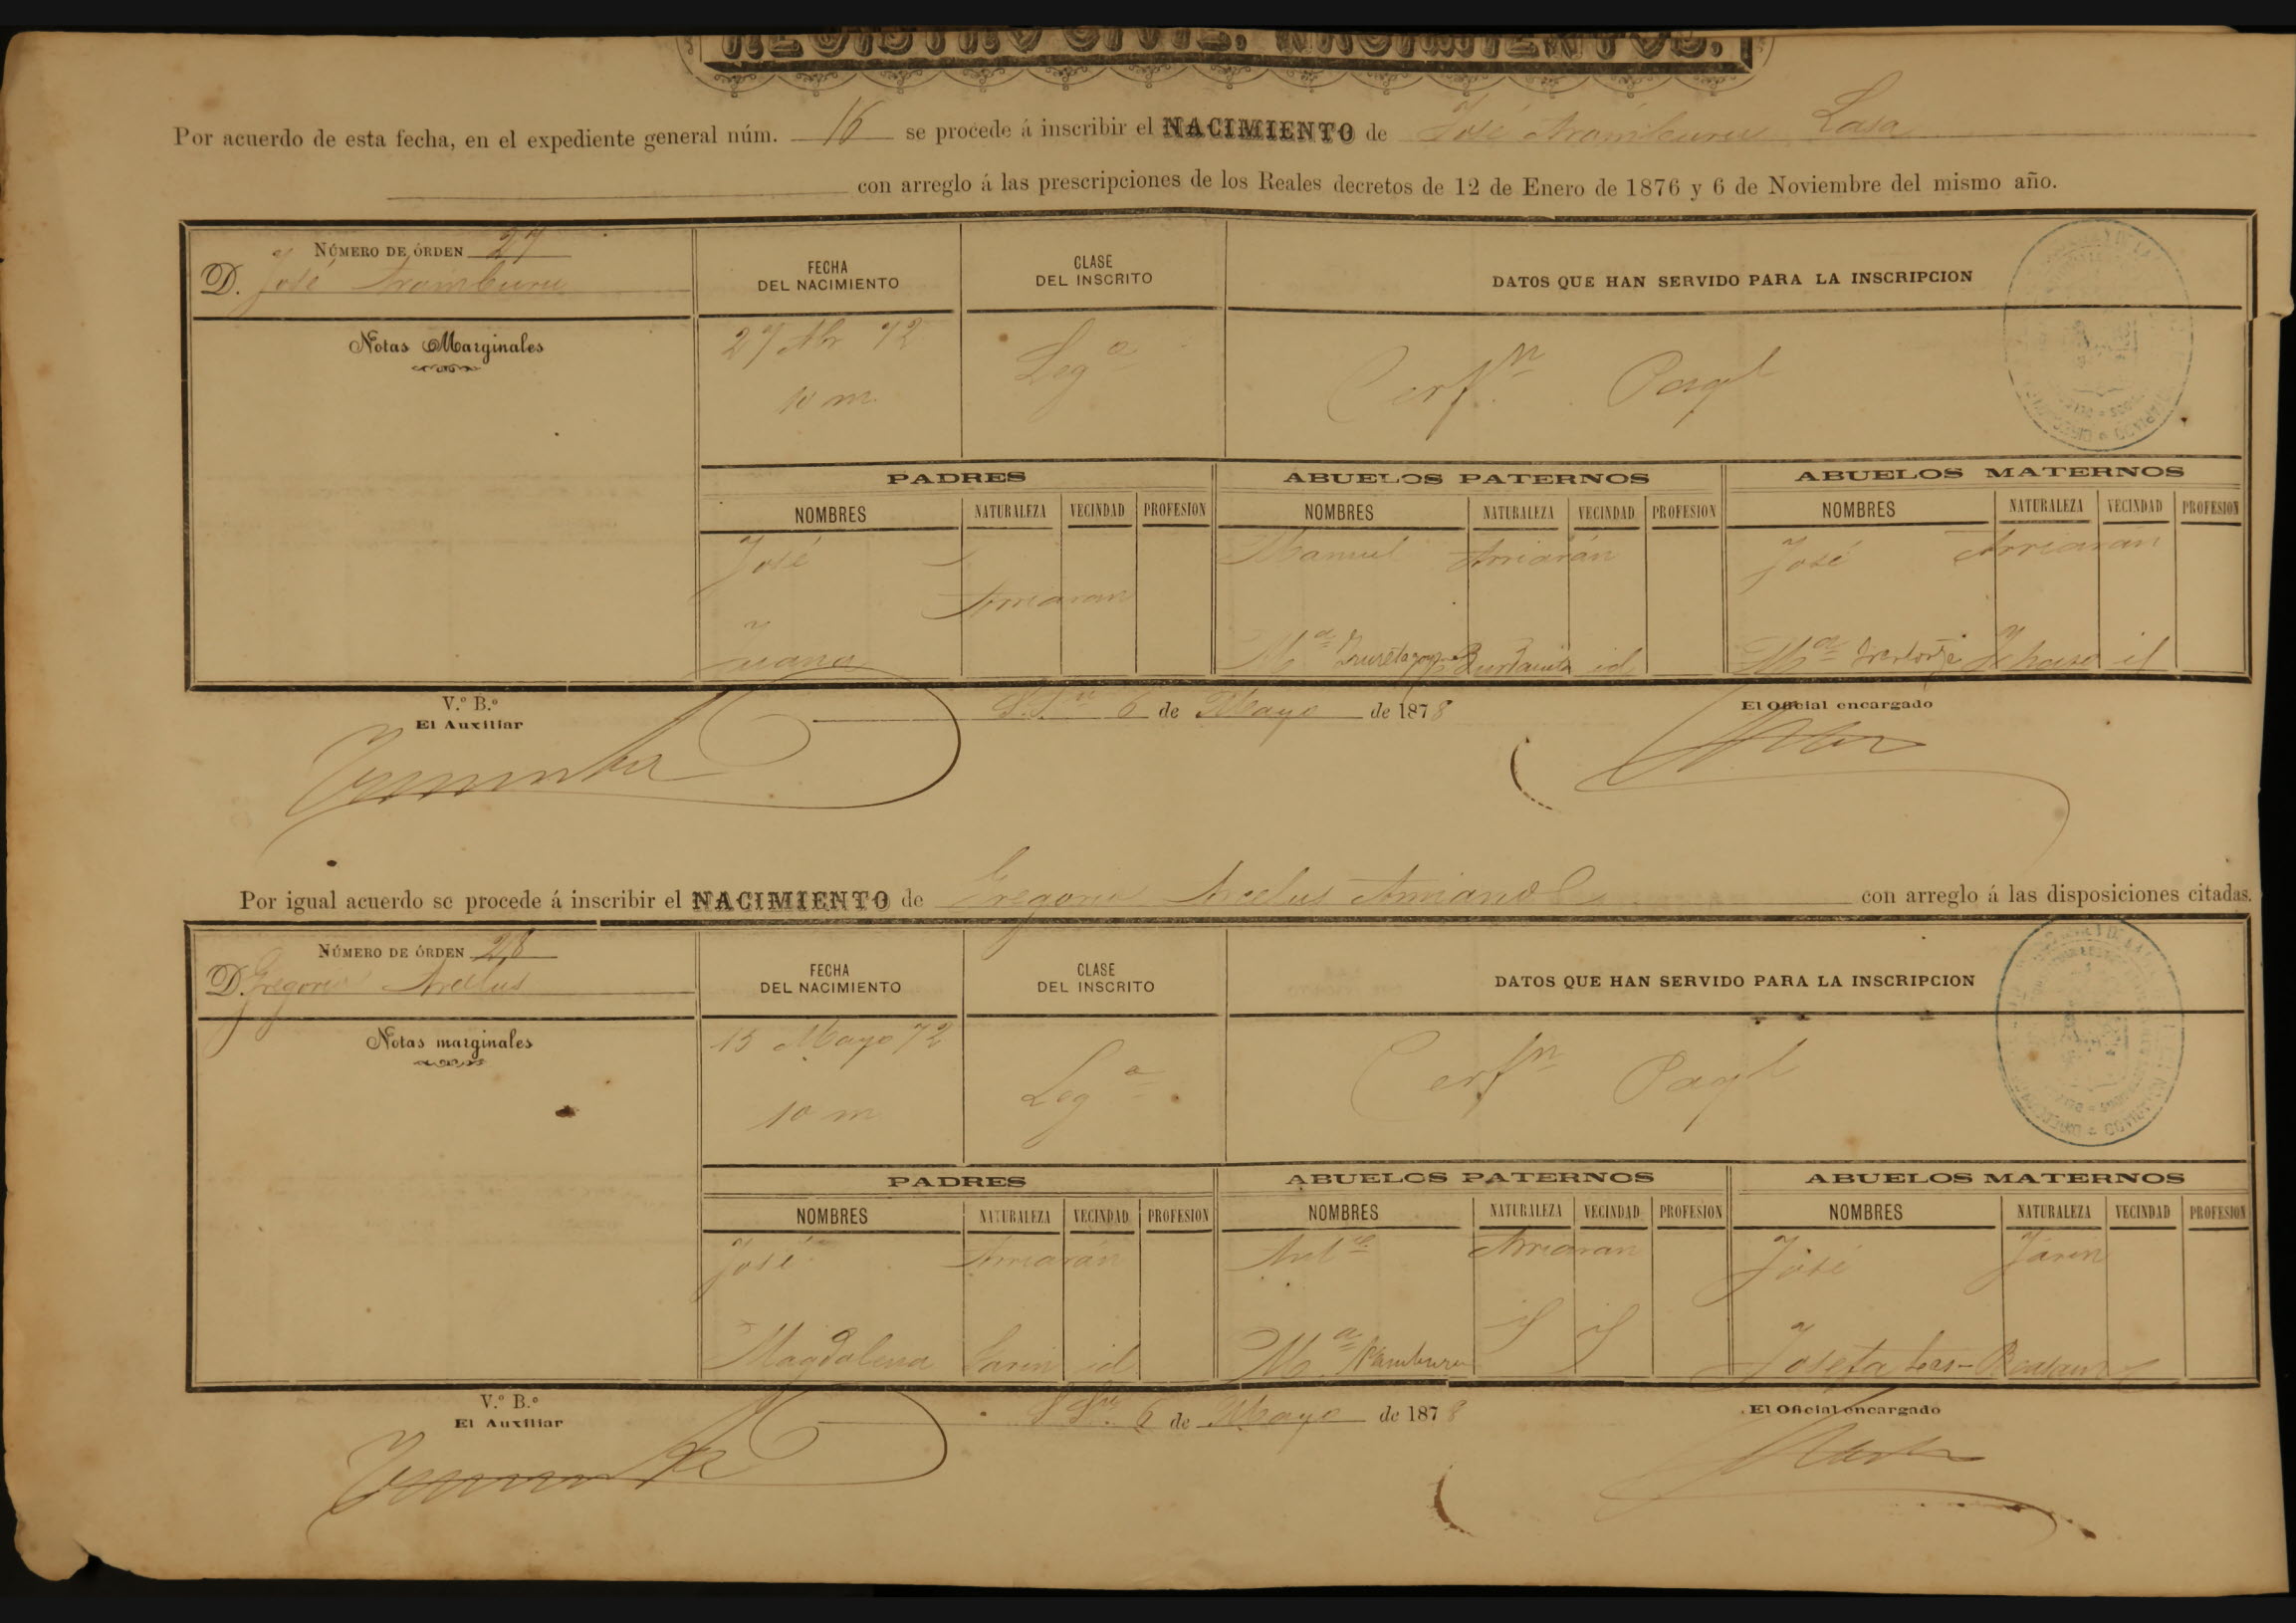 REGISTRO CIVIL. NACIMIENTOS.
Por acuerdo de esta fecha, en el expediente general núm. 16 se procede á inscribir el NACIMIENTO de José Aramburu Lasa
con arreglo á las prescripciones de los Reales decretos de 12 de Enero de 1876 y 6 de Noviembre del mismo año.
NÚMERO DE ÓRDEN 27
D. José Aramburu
FECHA DEL NACIMIENTO
CLASE DEL INSCRITO
DATOS QUE HAN SERVIDO PARA LA INSCRIPCION
Notas Marginales
27 Abr 72
10 m
Leg.º
Cerf.n Parql
PADRES ABUELOS PATERNOS ABUELOS MATERNOS
NOMBRES NATURALEZA VECINDAD PROFESION NOMBRES NATURALEZA VECINDAD PROFESION NOMBRES NATURALEZA VECINDAD PROFESION
José Manuel Arriarán José Arriaran
Arriaran
Juana M.a id M.a id
V.º B.º
El Auxiliar
S. S.n 6 de Mayo de 1878
El Oficial encargado
Por igual acuerdo se procede á inscribir el NACIMIENTO de Gregorio Arcelus con arreglo á las disposiciones citadas.
NÚMERO DE ÓRDEN 28
D. Gregorio Arcelus
FECHA DEL NACIMIENTO
CLASE DEL INSCRITO
DATOS QUE HAN SERVIDO PARA LA INSCRIPCION
Notas marginales
15 Mayo 72
10 m
Leg.º
Cerf.n Parql
PADRES ABUELOS PATERNOS ABUELOS MATERNOS
NOMBRES NATURALEZA VECINDAD PROFESION NOMBRES NATURALEZA VECINDAD PROFESION NOMBRES NATURALEZA VECINDAD PROFESION
José Arriarán Ant.º Arriaran José
Magdalena Garin id M.a Aramburu id id Josefa
V.º B.º
El Auxiliar
S. S.n 6 de Mayo de 1878
El Oficial encargado